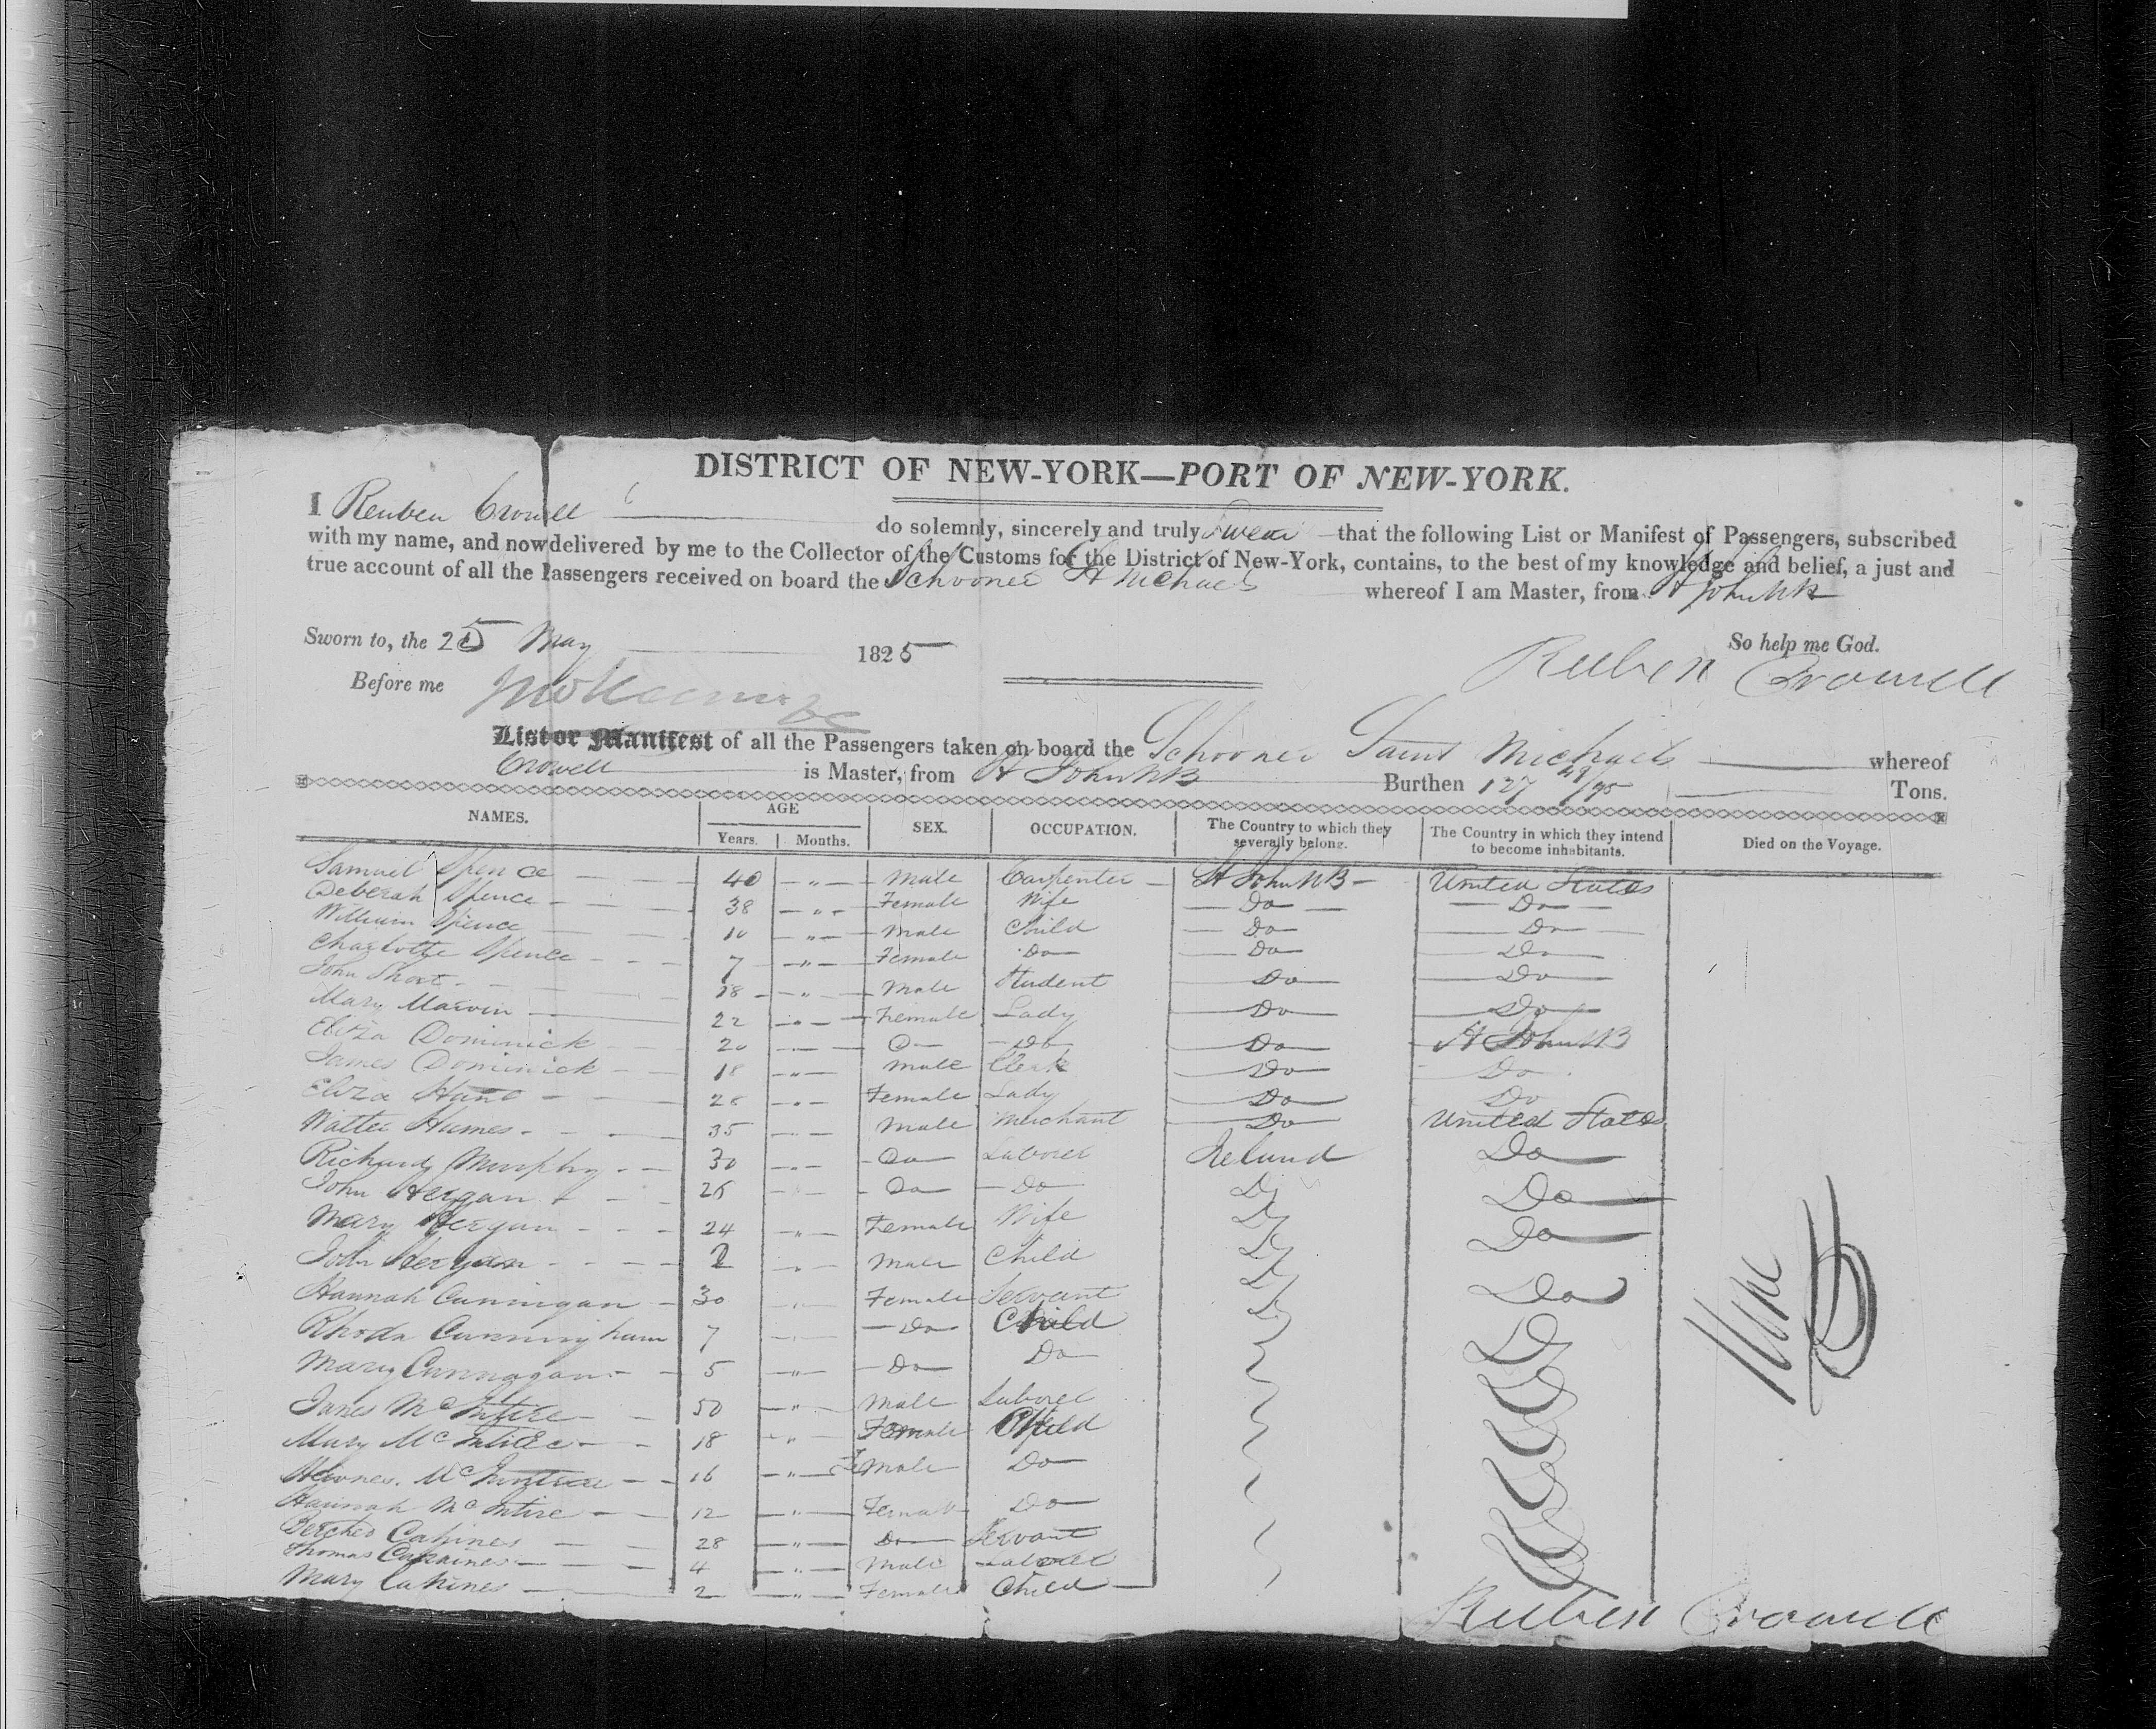 DISTRICT OF NEW-YORK—PORT OF NEW-YORK.
I Reuben Crowell do solemnly, sincerely and truly Swear that the following List or Manifest of Passengers, subscribed
with my name, and now delivered by me to the Collector of the Customs for the District of New-York, contains, to the best of my knowledge and belief, a just and
true account of all the Passengers received on board the Schooner St Michaels whereof I am Master, from St John NB
So help me God.
Sworn to, the 25 May 1825
Reuben Crowell
Before me
List or Manifest of all the Passengers taken on board the Schooner Saint Michaels whereof
Crowell is Master, from St John NB Burthen 127 49/95 Tons.
NAMES. AGE Years. Months. SEX. OCCUPATION. The Country to which they severally belong. The Country in which they intend to become inhabitants. Died on the Voyage.
Samuel Spence 40 " Male Carpenter St John NB United States
Deberah Spence 38 " Female Wife Do Do
William Spence 10 " Male Child Do Do
Charlotte Spence 7 " Female Do Do Do
John Short 18 " Male Student Do Do
Mary Marvin 22 " Female Lady Do Do
Eliza Dominick 20 " Do Do Do St John NB
James Dominick 18 " Male Clerk Do Do
Eliza 26 " Female Lady Do Do
Walter Humes 35 " Male Merchant Do United States
Richard Murphy 30 " Do Laborer Ireland Do
John Hergan 26 " Do Do Do Do
Mary Hergan 24 " Female Wife Do Do
John Hergan 2 " Male Child Do
Hannah Cunnigan 30 " Female Servant Do Do
Rhoda Cunningham 7 " Do Child Do Do
Mary Cunnagan 5 " Do Do Do
James McIntire 50 " Male Laborer
Mary McIntire 18 " Female Child
McIntire 16 " Female Do
Hannah McIntire 12 " Female Do
Cahines 28 " Do Servant
Thomas Cahaines 4 " Male Laborer
Mary Cahines 2 " Female Child
None
Reuben Crowell